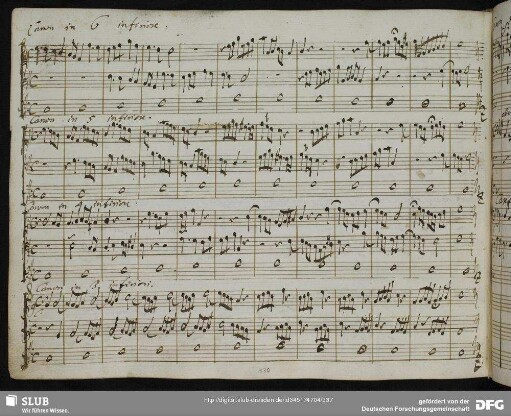 Canon in 6 inferiore.
Canon in 5 inferiore.
Canon in 4 inferiore
Canon in inferiori.
SLUB
Wir führen Wissen.
http://digital.slub-dresden.de/
gefördert von der
Deutschen Forschungsgemeinschaft
DFG